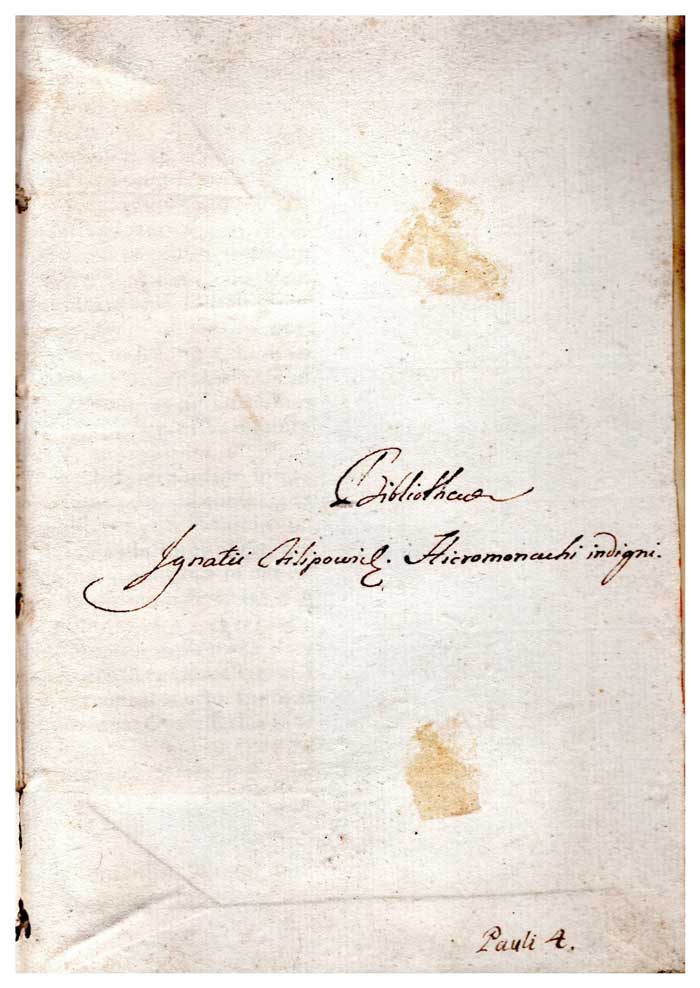 Bibliothecæ
Ignatii Filipowicz. Hieromonachi indigni.
Pauli 4.